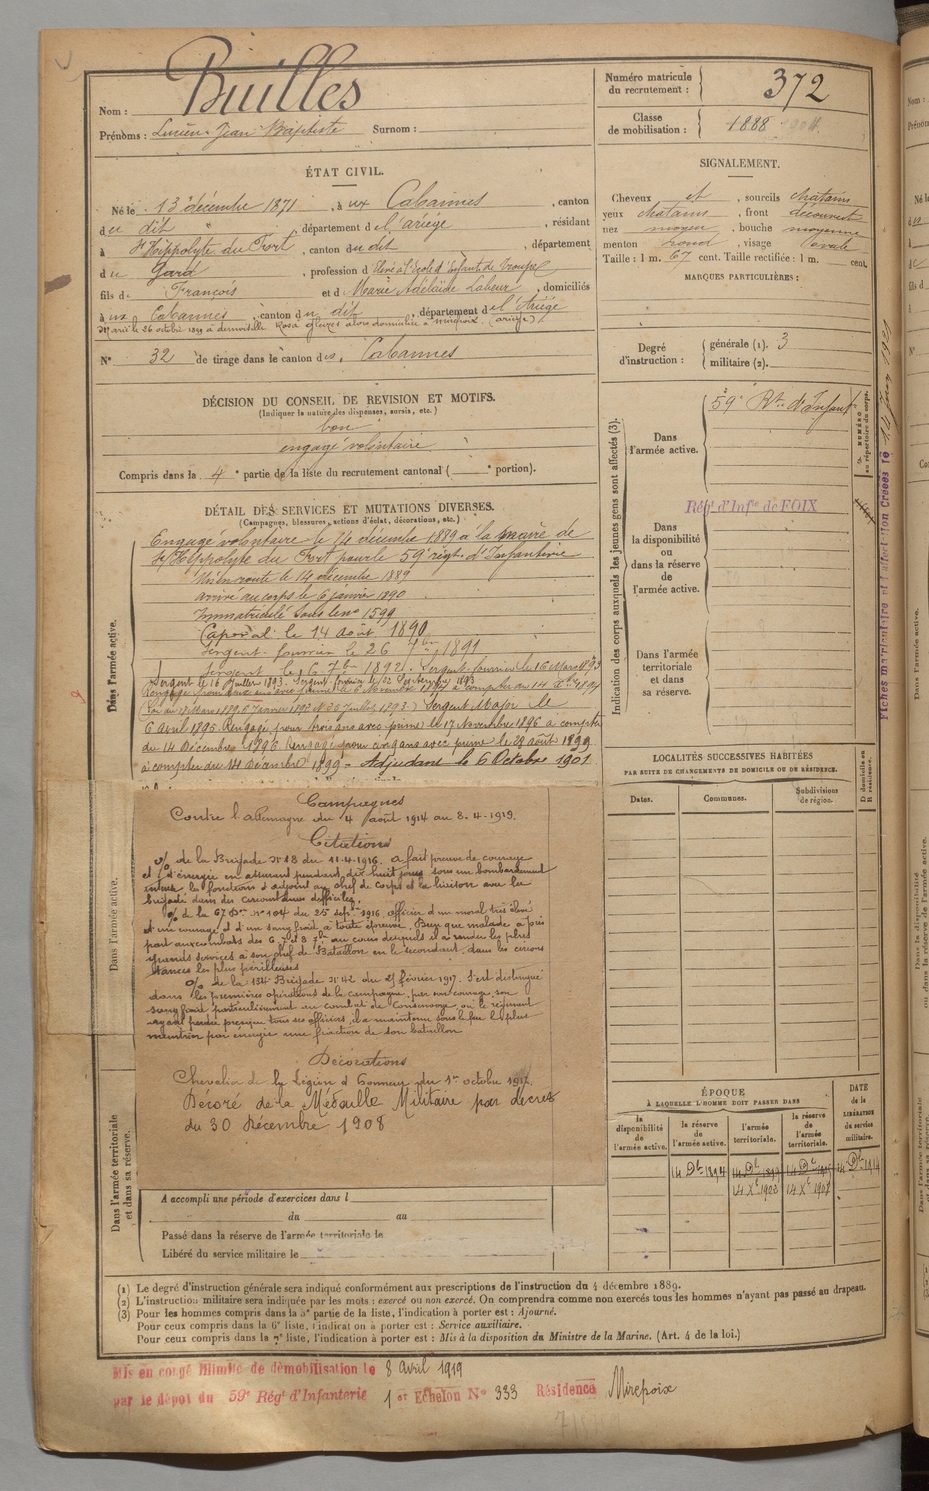 Nom : Builles
Prénoms : Lucien Jean Baptiste Surnom :
Numéro matricule du recrutement : 372
Classe de mobilisation : 1888
ÉTAT CIVIL.
Né le 13 décembre 1871, à ux Cabannes, canton
du dit, département de l'ariège, résidant
à St Hippolyte du Fort, canton du dit, département
du Gard, profession d'Elève à l'école d'Enfants de troupe
fils de François et de Marie Adélaïde Labeur, domiciliés
à ux Cabannes, canton du dit, département de l'Ariège
Marié le 26 octobre à demoiselle Rosa alors domiciliée à mirepoix (ariège)
N° 32 de tirage dans le canton des Cabannes
SIGNALEMENT.
Cheveux et, sourcils chatains
yeux chatains, front découvert
nez moyen, bouche moyenne
menton rond, visage ovale
Taille : 1 m. 67 cent. Taille rectifiée : 1 m. cent.
MARQUES PARTICULIÈRES :
Degré d'instruction : générale (1). 3
militaire (2).
DÉCISION DU CONSEIL DE REVISION ET MOTIFS.
(Indiquer la nature des dispenses, sursis, etc.)
bon
engagé volontaire
Compris dans la 4e partie de la liste du recrutement cantonal ( e portion).
DÉTAIL DES SERVICES ET MUTATIONS DIVERSES.
(Campagnes, blessures, actions d'éclat, décorations, etc.)
Dans l'armée active.
Engagé volontaire le 14 décembre 1889 à la mairie de
St Hippolyte du Fort pour le 59e régt d'Infanterie
Mis en route le 14 décembre 1889
arrivé au corps le 6 janvier 1890
Immatriculé sous le no 1599
Caporal le 14 août 1890
Sergent fourrier le 26 7bre 1891
Sergent le 6 7bre 1892. Sergent fourrier le 16 Mars 1893
Sergent le 16 juillet 1893 Sergent fourrier le 22 Septembre 1893
Rengagé pour deux ans avec prime le 6 Novembre 1894 à compter du 14 Xbre 1894
Sergent Major le
6 Avril 1895. Rengagé pour trois ans avec prime le 17 Novembre 1896 à compter
du 14 Décembre 1896. Rengagé pour cinq ans avec prime le 28 août 1899
à compter du 14 Décembre 1899 - Adjudant le 6 Octobre 1901
Campagnes
Contre l'allemagne du 4 août 1914 au 8.4.1919.
Citations
% de la Brigade N° 18 du 11.4.1916. a fait preuve de courage
et d'énergie en assurant pendant dix huit jours sous un bombardement
intense les fonctions d'adjoint au chef de corps et la liaison avec la
brigade dans des circonstances difficiles.
% de la 67e Don no 104 du 25 septbre 1916. officier d'un moral très élevé
et un courage et d'un sang froid à toute épreuve. Bien que malade a pris
part aux combats des 6, 7 et 8 7bre au cours desquels il a rendu les plus
grands services à son chef de Bataillon en le secondant dans les circons
tances les plus périlleuses
% de la 134e Brigade N° 42 du 21 février 1917. S'est distingué
dans les premières opérations de la campagne par son courage, son
sang froid particulièrement au combat de où le régiment
ayant perdu presque tous ses officiers, il a maintenu sous le feu le plus
meurtrier par énergie une fraction de son bataillon
Décorations
Chevalier de la Légion d'honneur du 1er octobre 1917.
Décoré de la Médaille Militaire par décret
du 30 Décembre 1908
Dans l'armée active.
Dans l'armée territoriale et dans sa réserve.
A accompli une période d'exercices dans l
du au
Passé dans la réserve de l'armée territoriale le
Libéré du service militaire le
Indication des corps auxquels les jeunes gens sont affectés (3).
Dans l'armée active. 59e Rt. d'Infant
Régt d'Infie de FOIX
Dans la disponibilité ou dans la réserve de l'armée active.
Dans l'armée territoriale et dans sa réserve.
NUMÉRO au répertoire du corps.
LOCALITÉS SUCCESSIVES HABITÉES
PAR SUITE DE CHANGEMENTS DE DOMICILE OU DE RÉSIDENCE.
Dates. Communes. Subdivisions de région. D domicile ou R résidence.
ÉPOQUE
À LAQUELLE L'HOMME DOIT PASSER DANS
DATE de la LIBÉRATION du service militaire.
la disponibilité de l'armée active. la réserve de l'armée active. l'armée territoriale. la réserve de l'armée territoriale.
14 Dbre 1894 14 Dbre 14 Dbre 14 Dbre 1914
14 Xbre 1902 14 Xbre 1907
(1) Le degré d'instruction générale sera indiqué conformément aux prescriptions de l'instruction du 4 décembre 1889.
(2) L'instruction militaire sera indiquée par les mots : exercé ou non exercé. On comprendra comme non exercés tous les hommes n'ayant pas passé au drapeau.
(3) Pour les hommes compris dans la 5e partie de la liste, l'indication à porter est : Ajourné.
Pour ceux compris dans la 6e liste, l'indication à porter est : Service auxiliaire.
Pour ceux compris dans la 7e liste, l'indication à porter est : Mis à la disposition du Ministre de la Marine. (Art. 4 de la loi.)
Mis en congé illimité de démobilisation le 8 avril 1919
par le dépôt du 59e Régt d'Infanterie 1er Echelon N° 333 Résidence Mirepoix